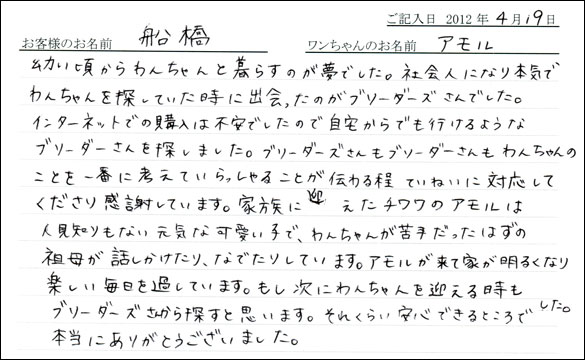 ご記入日 2012年4月19日
お客様のお名前 船橋 ワンちゃんのお名前 アモル
幼い頃からわんちゃんと暮らすのが夢でした。社会人になり本気で
わんちゃんを探していた時に出会ったのがブリーダーズさんでした。
インターネットでの購入は不安でしたので自宅からでも行けるような
ブリーダーさんを探しました。ブリーダーズさんもブリーダーさんもわんちゃんの
ことを一番に考えていらっしゃることが伝わる程ていねいに対応して
くださり感謝しています。家族に迎えたチワワのアモルは
人見知りもない元気な可愛い子で、わんちゃんが苦手だったはずの
祖母が話しかけたり、なでたりしています。アモルが来て家が明るくなり
楽しい毎日を過しています。もし次にわんちゃんを迎える時も
ブリーダーズさんから探すと思います。それくらい安心できるところでした。
本当にありがとうございました。